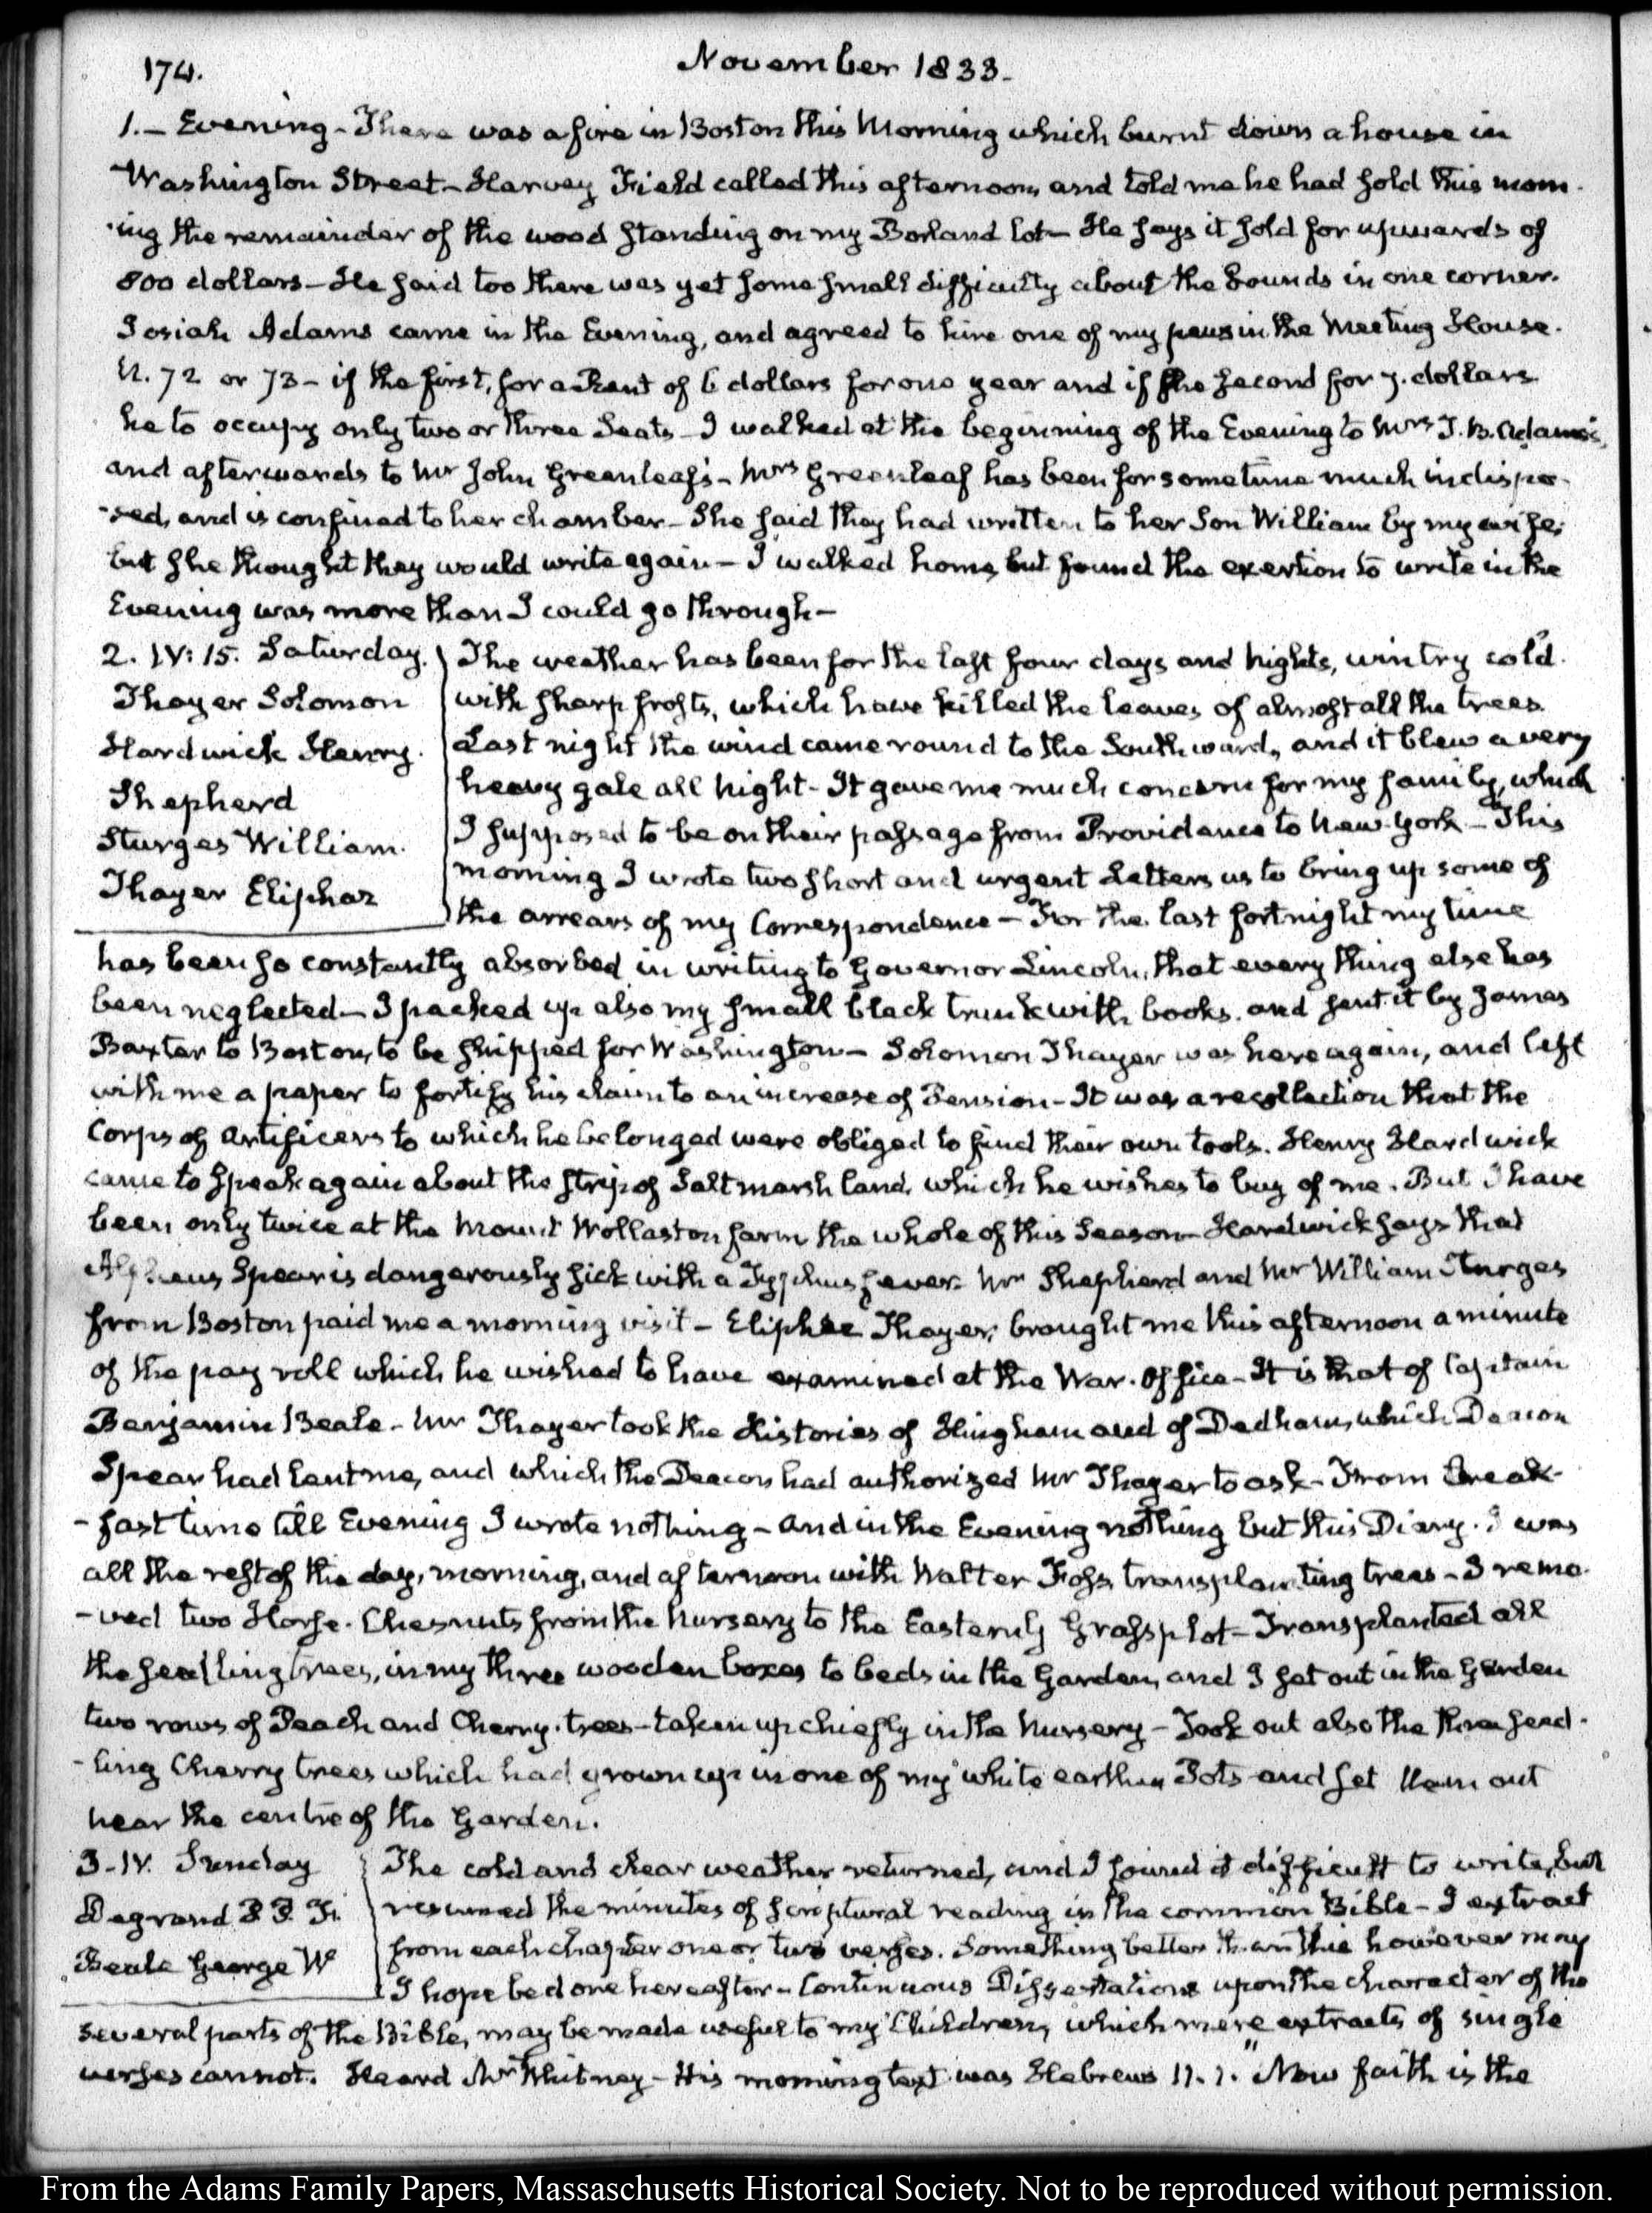 174.
November 1833.
1. — Evening - There was a fire in Boston this Morning which burnt down a house in
Washington Street - Harvey Field called this afternoon, and told me he had sold this morn-
-ing the remainder of the wood standing on my Borland lot - He says it sold for upwards of
800 dollars - He said too there was yet some small difficulty about the bounds in one corner.
Josiah Adams came in the Evening, and agreed to hire one of my pews in the Meeting House.
N. 72 or 73 - if the first, for a Rent of 6 dollars for one year and if the second for 7. dollars
he to occupy only two or three Seats - I walked at the beginning of the Evening to Mrs T. B. Adams's,
and afterwards to Mr John Greenleaf's - Mrs Greenleaf has been for some time much indispo-
-sed, and is confined to her chamber - She said they had written to her Son William by my wife;
but she thought they would write again - I walked home, but found the exertion to write in the
Evening was more than I could go through -
2. IV: 15. Saturday.
Thayer Solomon
Hardwick Henry.
Shepherd
Sturges William.
Thayer Eliphaz
The weather has been for the last four days and nights, wintry cold.
with sharp frosts, which have killed the leaves of almost all the trees.
Last night the wind came round to the Southward, and it blew a very
heavy gale all night - It gave me much concern for my family, which
I supposed to be on their passage from Providence to New-York - This
morning I wrote two short and urgent Letters as to bring up some of
the arrears of my Correspondence - For the last fortnight my time
has been so constantly absorbed in writing to Governor Lincoln, that every thing else has
been neglected - I packed up also my small black trunk with books, and sent it by James
Baxter to Boston, to be shipped for Washington - Solomon Thayer was here again, and left
with me a paper to fortify his claim to an increase of Pension - It was a recollection that the
Corps of Artificers to which he belonged were obliged to find their own tools. Henry Hardwick
came to speak again about the strip of Salt marsh land, which he wishes to buy of me. But I have
been only twice at the Mount Wollaston farm the whole of this Season - Hardwick says that
Alpheus Spear is dangerously sick with a Typhus fever. Mr Shepherd and Mr William Sturges
from Boston paid me a morning visit - Eliphaz Thayer, brought me this afternoon a minute
of the pay roll which he wished to have examined at the War-Office - It is that of Captain
Benjamin Beale - Mr Thayer took the Histories of Hingham and of Dedham, which Deacon
Spear had lent me, and which the Deacon had authorized Mr Thayer to ask - From Break-
-fast time till Evening I wrote nothing - and in the Evening nothing but this Diary. I was
all the rest of the day, morning, and afternoon with Walter Foss, transplanting trees - I remo-
-ved two Horse-Chesnuts from the Nursery to the Easterly Grass plot - Transplanted all
the seedling trees, in my three wooden boxes to beds in the Garden, and I set out in the Garden
two rows of Peach and Cherry-trees - taken up chiefly in the Nursery - Took out also the three seed-
-ling Cherry trees which had grown up in one of my white earthen Pots and set them out
near the centre of the Garden.
3. IV. Sunday
Degrand P. P. F.
Beale George W
The cold and clear weather returned, and I found it difficult to write, but
resumed the minutes of scriptural reading in the common Bible - I extract
from each chapter one or two verses. Something better than this however may
I hope be done hereafter - Continuous Dissertations upon the character of the
several parts of the Bible, may be made useful to my Children, which mere extracts of single
verses cannot. Heard Mr Whitney - His morning text was Hebrews 11. 1. "Now faith is the
From the Adams Family Papers, Massaschusetts Historical Society. Not to be reproduced without permission.